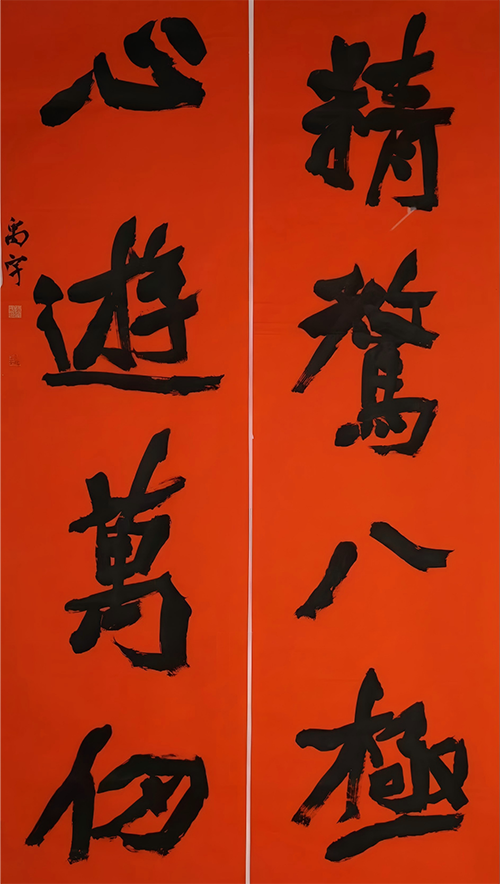 精骛八極
心遊萬仞
禹宇